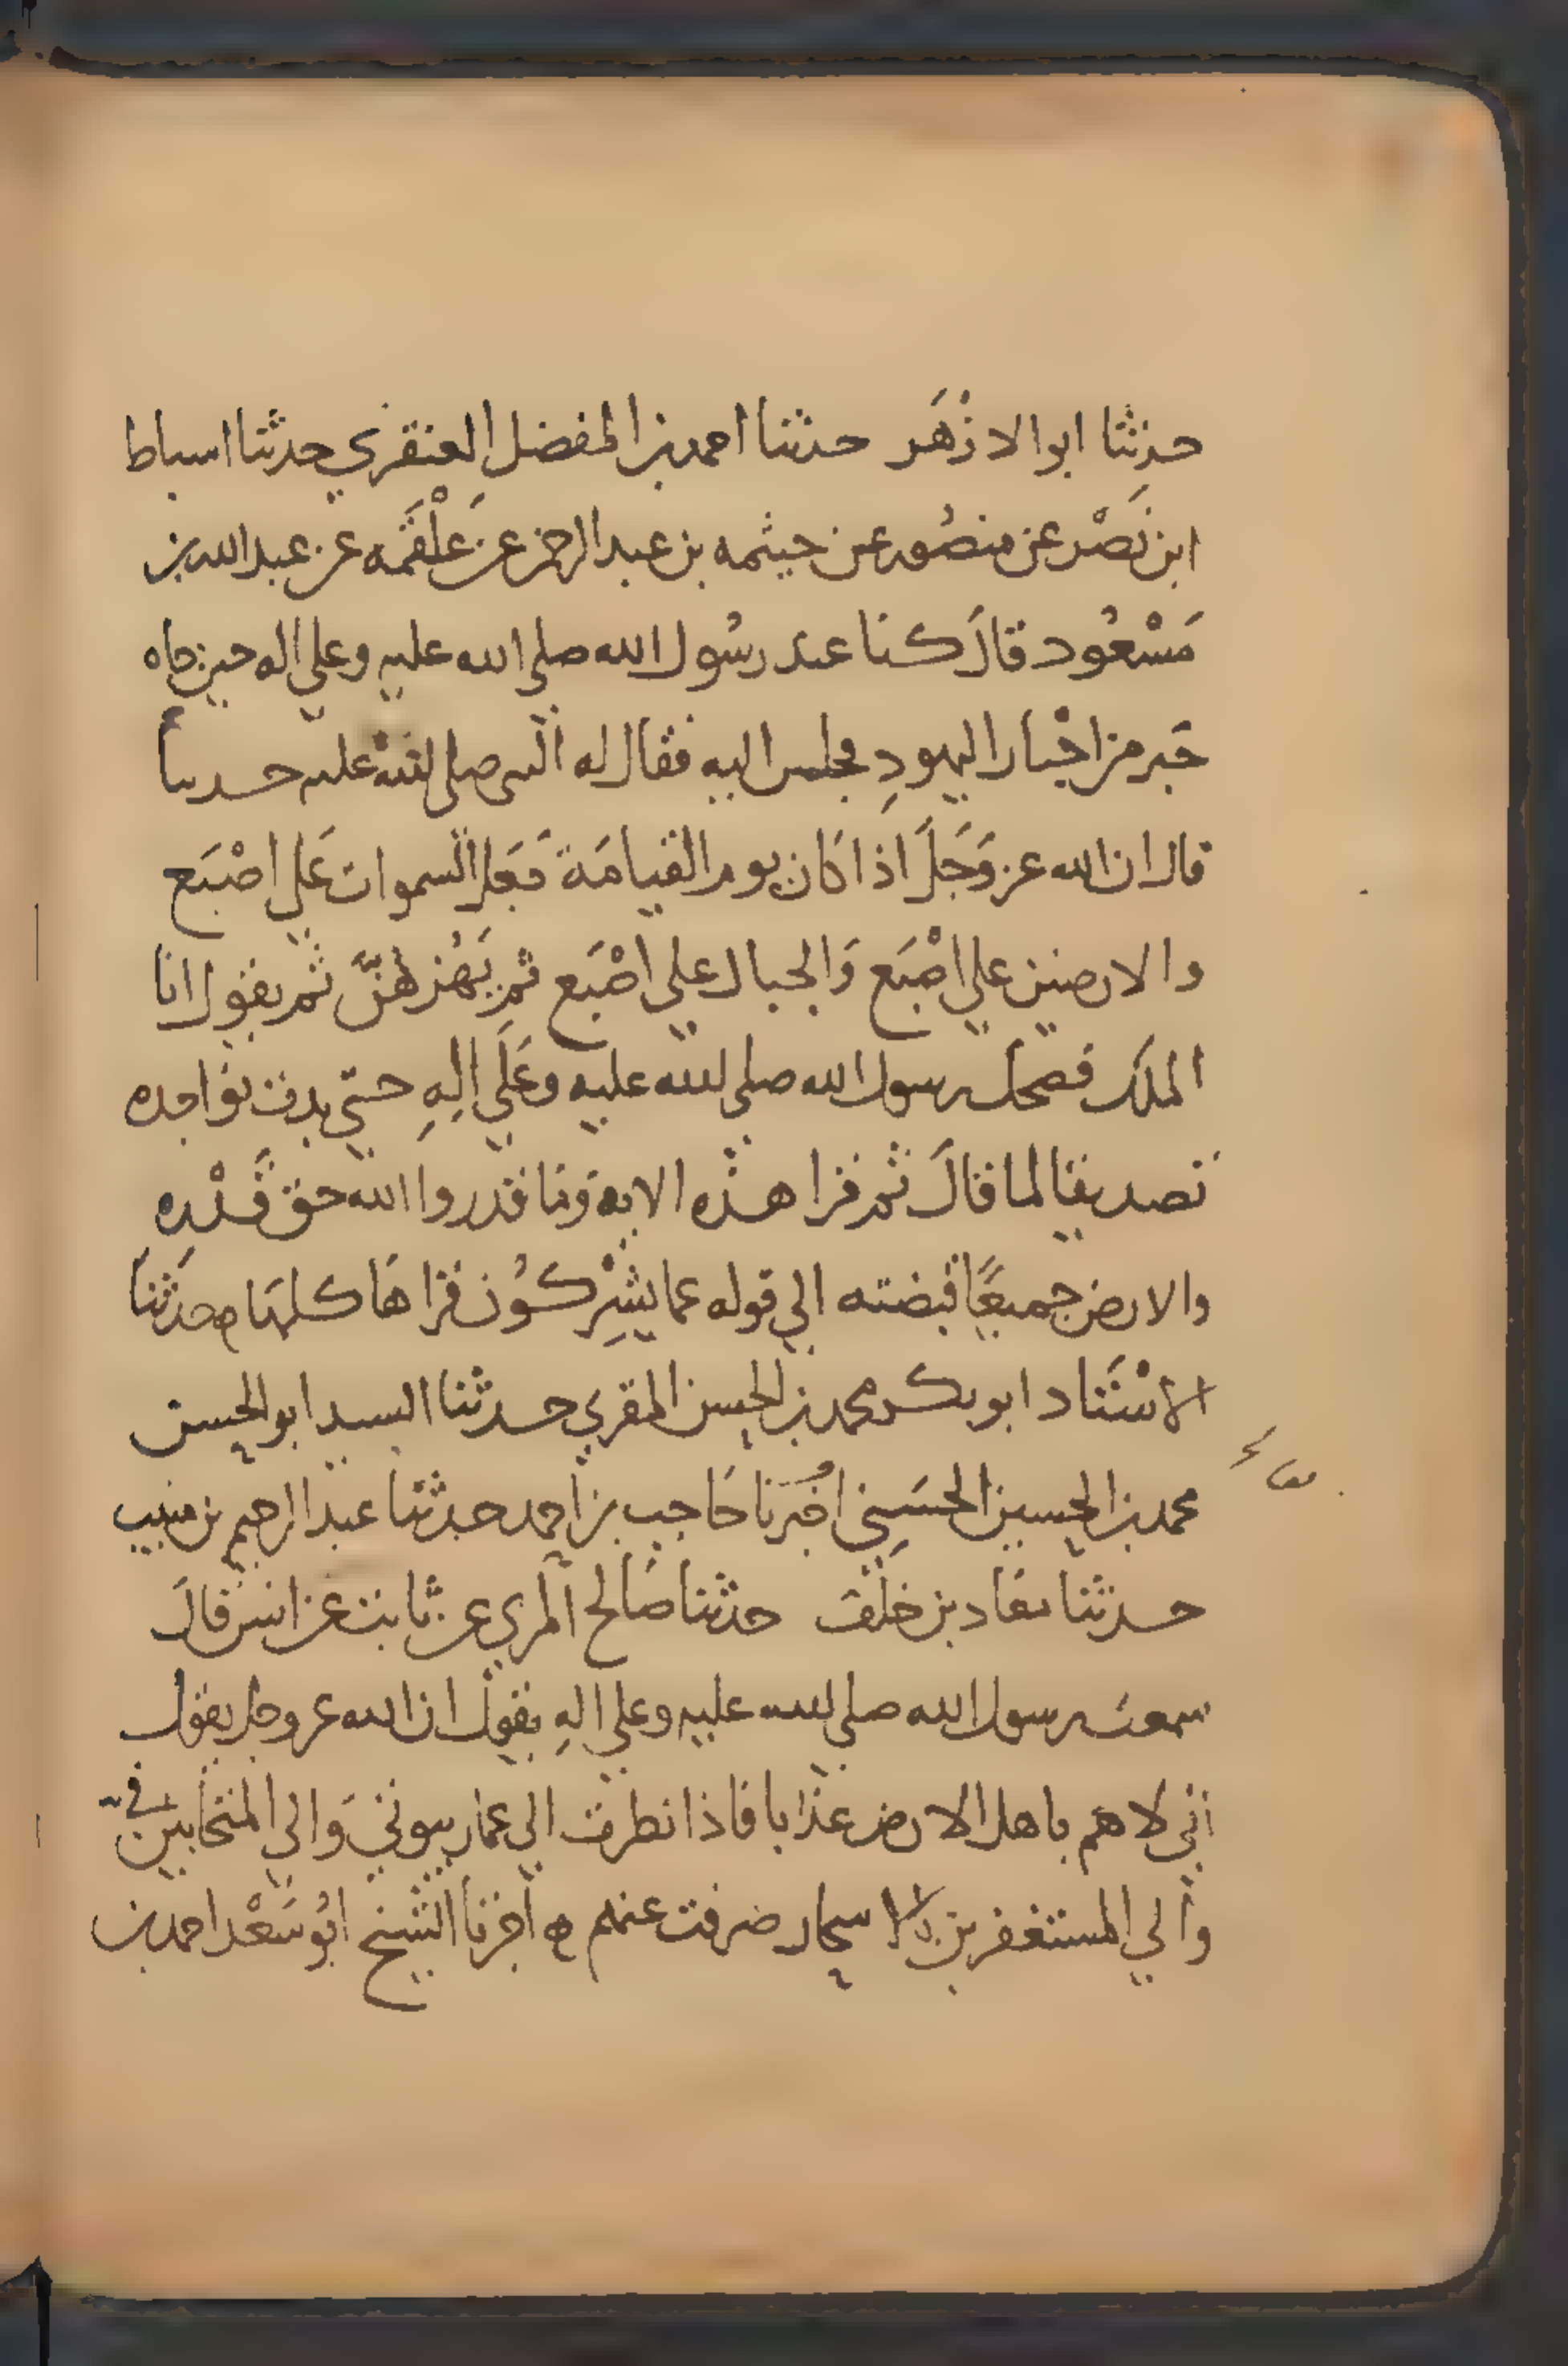 حدثنا ابو الازْهَر حدثنا احمد بن المفضل العنقري حدثنا اسباط
ابن نَصْر عن منصُور عن خيثمه بن عبد الرحمن عن عَلْقَمَه عن عبد الله بن
مَسْعُود قالَ كنا عند رسُول الله صلى الله عليه وعلى اله حين جاه
حَبر من احْبار اليهودِ فجلس اليه فقال له النبي صلى الله عليه حدثنا
قال ان الله عز وَجَلَ اذا كان يوم القيامَة جَعَل السموات عَلى اصْبَع
والارضين على اصْبَع وَالجبال على اصْبَع ثم يَهُزهُنَّ ثم يقول انا
الملك فضحك رسول الله صلى الله عليه وعَلَى الِهِ حتى بدت نواجده
تصديقا لما قالَ ثم قرا هذه الايه وَمَا قدروا الله حق قَدْرِه
والارض جميعًا قبضته الى قوله عما يشْرِكُون قراهَا كلهَا ه حدثنا
الاسْتَاد ابو بكر محمد بن الحسن المقري حدثنا السيد ابو الحسن
محمد بن الحسين الحسَنِي اخبَرنا حَاجب بن احمد حدثنا عبد الرحيم بن منيب
حدثنا معَاد بن خلف حدثنا صَالح المري عن ثابت عن انس قالَ
سمعت رسول الله صلى الله عليه وعلى الهِ يقول ان الله عز وجل يقول
اني لاهم باهل الارض عذابا فاذا نظرت الى عمار بيوتي وَالى المتحابين في
والى المستغفرين بالاسحار صرفت عنهم ه اخبرنا الشيخ ابُو سَعْد احمد بن
معاد